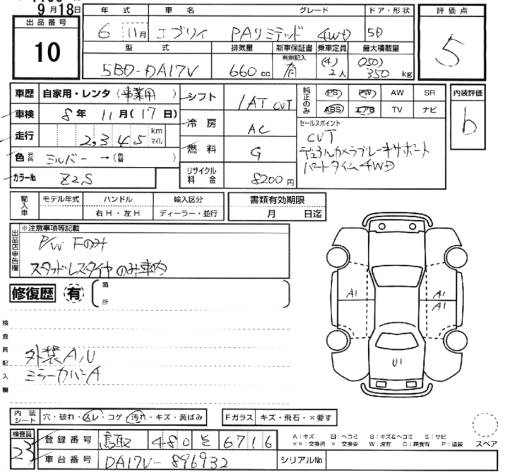 9月18日
出品番号
10
年式 車名 グレード ドア・形状
6 11月 エブリィ PAリミテッド 4WD 5D
型式 排気量 新車保証書 有無記入 乗車定員 最大積載量
5BD-DA17V 660cc 有 (4) 2人 (250) 350kg
評価点
5
車歴 自家用・レンタ・(事業用)
シフト 1AT CVT
純正のみ PS PW AW SR
ABS エアB TV ナビ
内装評価
b
車検 8年 11月(17日)
冷房 AC
セールスポイント
CVT
デュアルカメラブレーキサポート
パートタイム4WD
走行 2,345 km マイル
燃料 G
色 シルバー →(
カラーNo. Z2S
リサイクル料金 8200円
輸入車 モデル年式 ハンドル 輸入区分
右H・左H ディーラー・並行
書類有効期限
月 日迄
出品店申告欄
※注意事項等記載
P/W Fのみ
スタッドレスタイヤのみ車内
修復歴 有 箇所
検査員記入欄
外装A,U
ミラーカバーA
A1 A1
U1
内装シート 穴・破れ・スレ・コゲ・汚れ・キズ・黄ばみ
Fガラス キズ・飛石・×要す
検査員 23
登録番号 鳥取 480 を 6716
A:キズ U:ヘコミ B:キズ&ヘコミ S:サビ
スペア
車台番号 DA17V-896932
シリアルNo.